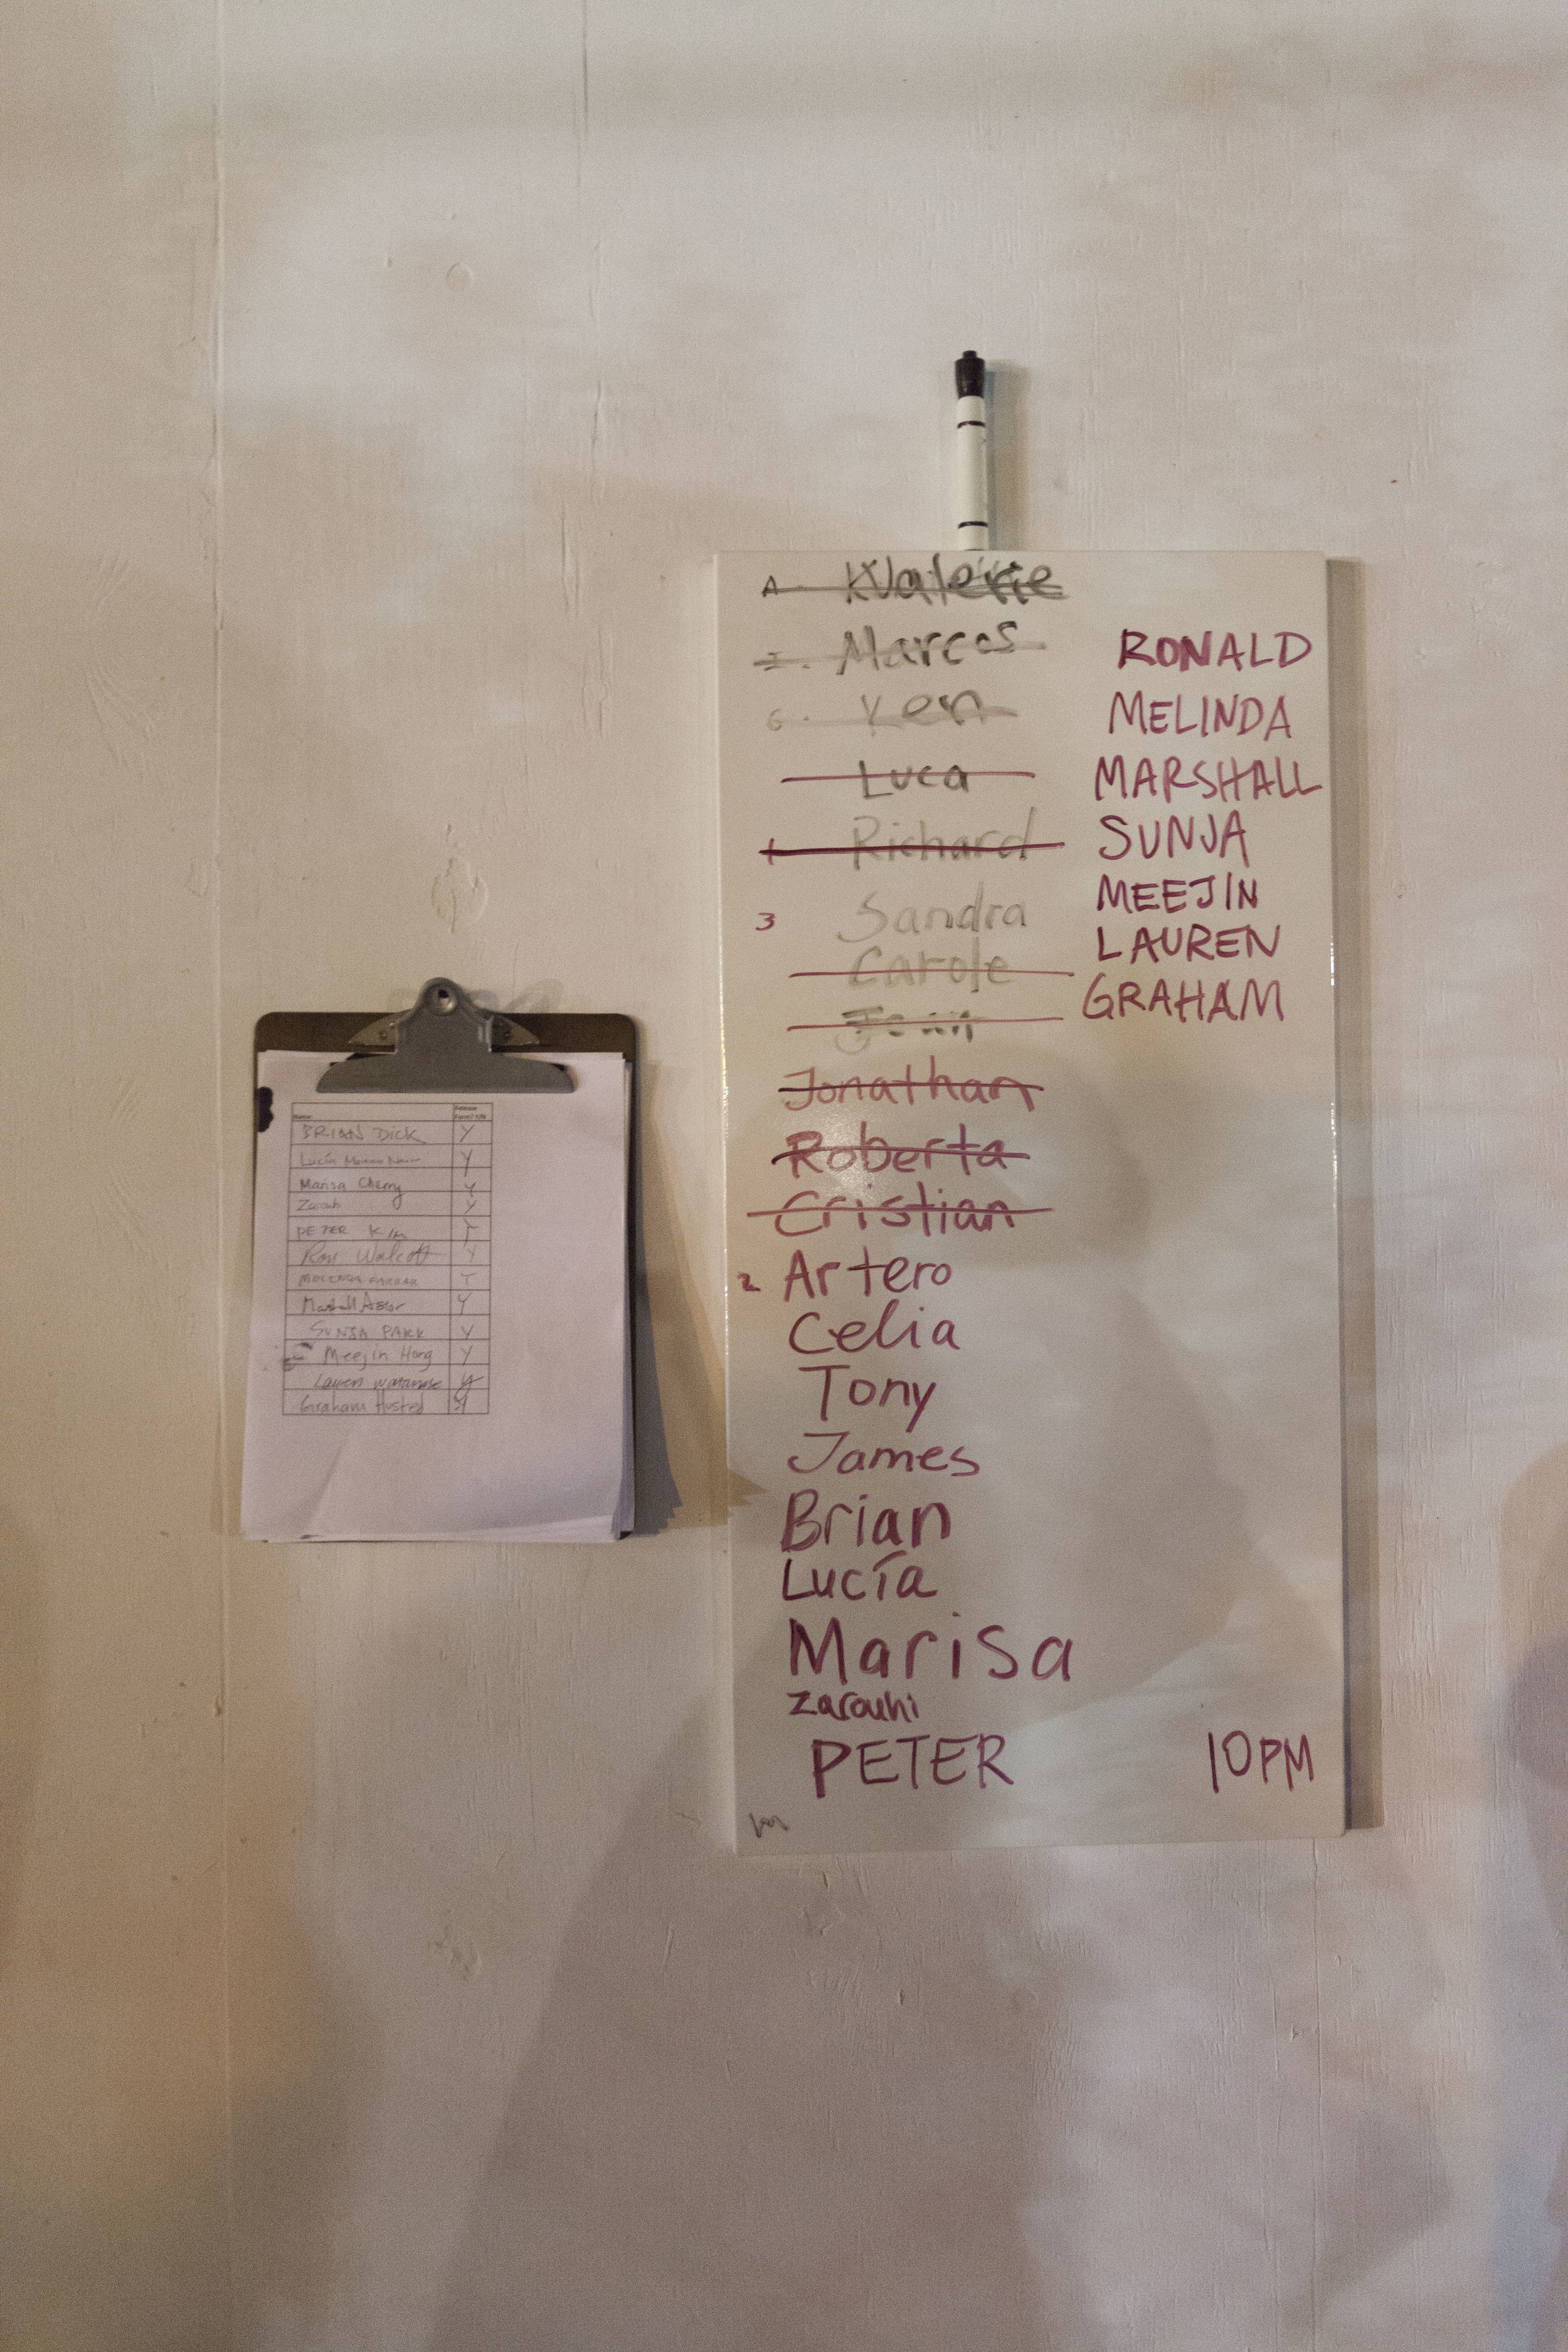 Name: Release Form? Y/N
BRIAN DICK Y
Lucía Y
Marisa Cherry Y
Zarouhi Y
PETER Kim Y
Ron Walcott Y
MELINDA FARRAR Y
Marshall Astor Y
SUNJA PARK Y
Meejin Hong Y
Lauren Watanabe Y
Graham Husted Y
A. Valerie
Marcos
6. Ken
Luca
1 Richard
3 Sandra
Carole
Jonathan
Roberta
Cristian
2 Artero
Celia
Tony
James
Brian
Lucía
Marisa
Zarouhi
PETER
RONALD
MELINDA
MARSHALL
SUNJA
MEEJIN
LAUREN
GRAHAM
10PM